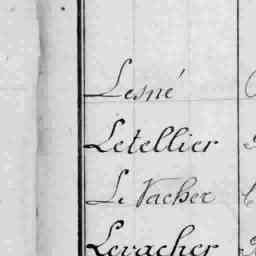 Lesné
Letellier
Le Vacher
Levacher